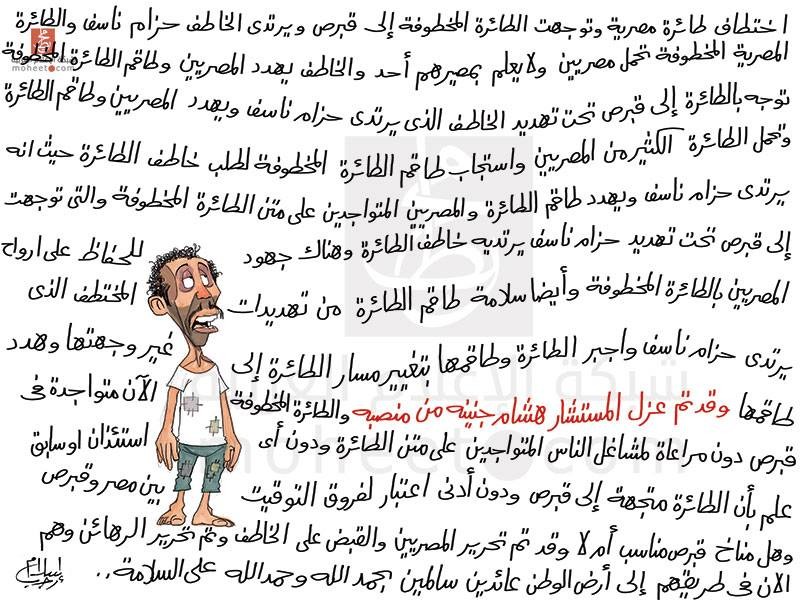 اختطاف طائرة مصرية وتوجهت الطائرة المخطوفة إلى قبرص ويرتدى الخاطف حزام ناسف والطائرة
المصرية المخطوفة تحمل مصريين ولا يعلم بمصيرهم أحد والخاطف يهدد المصريين وطاقم الطائرة المخطوفة
توجه بالطائرة إلى قبرص تحت تهديد الخاطف الذى يرتدى حزام ناسف ويهدد المصريين وطاقم الطائرة
وتحمل الطائرة الكثير من المصريين واستجاب طاقم الطائرة المخطوفة لطلب خاطف الطائرة حيث انه
يرتدى حزام ناسف ويهدد طاقم الطائرة والمصريين المتواجدين على متن الطائرة المخطوفة والتى توجهت
إلى قبرص تحت تهديد حزام ناسف يرتديه خاطف الطائرة وهناك جهود للحفاظ على ارواح
المصريين بالطائرة المخطوفة وأيضا سلامة طاقم الطائرة من تهديدات المختطف الذى
يرتدى حزام ناسف واجبر الطائرة وطاقمها تغيير مسار الطائرة إلى غير وجهتها وهدد
طاقمها وقد تم عزل المستشار هشام جنينه من منصبه والطائرة المخطوفة الآن متواجدة فى
قبرص دون مراعاة لمشاغل الناس المتواجدين على متن الطائرة ودون أى استئذان او سابق
علم بأن الطائرة متجهة إلى قبرص ودون أدنى اعتبار لفروق التوقيت بين مصر وقبرص
وهل مناخ قبرص مناسب أم لا وقد تم تحرير المصريين والقبض على الخاطف وتم تحرير الرهائن وهم
الان فى طريقهم إلى أرض الوطن عائدين سالمين بحمد الله وحمدالله على السلامة..
إسلام
moheet.com
شبكة الإعلام العربية
moheet.com